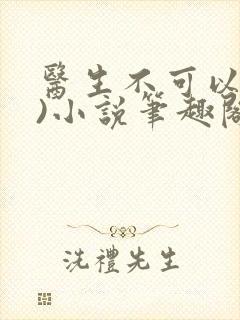 醫生不可以
)小說筆趣閣
洗禮先生